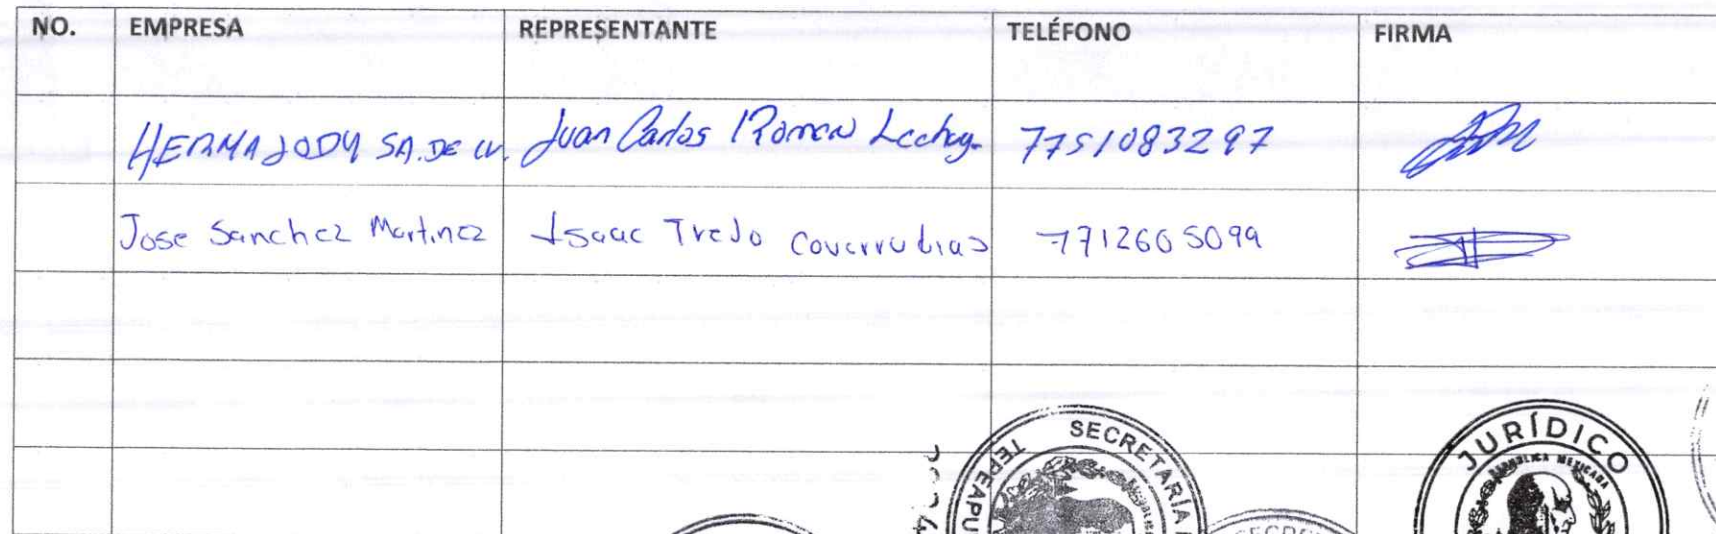 NO. EMPRESA REPRESENTANTE TELÉFONO FIRMA
HERMAJODY SA. DE CV. Juan Carlos Roman 7751083297
Jose Sanchez Martinez Isaac Trejo Covarrubias 7712605099
SECRETARÍA
TEPEAPU
JURÍDICO